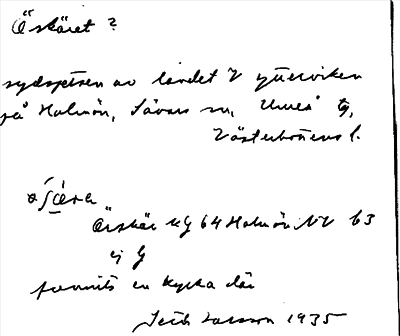 Öskäret?
sydspetsen av landet V ytterviken
på Holmön, Sävar sn, Umeå tg,
Västerbottens l.
Örskär kg 64 Holmön NV b3
ej G
funnits en kyrka där
Larsson 1935